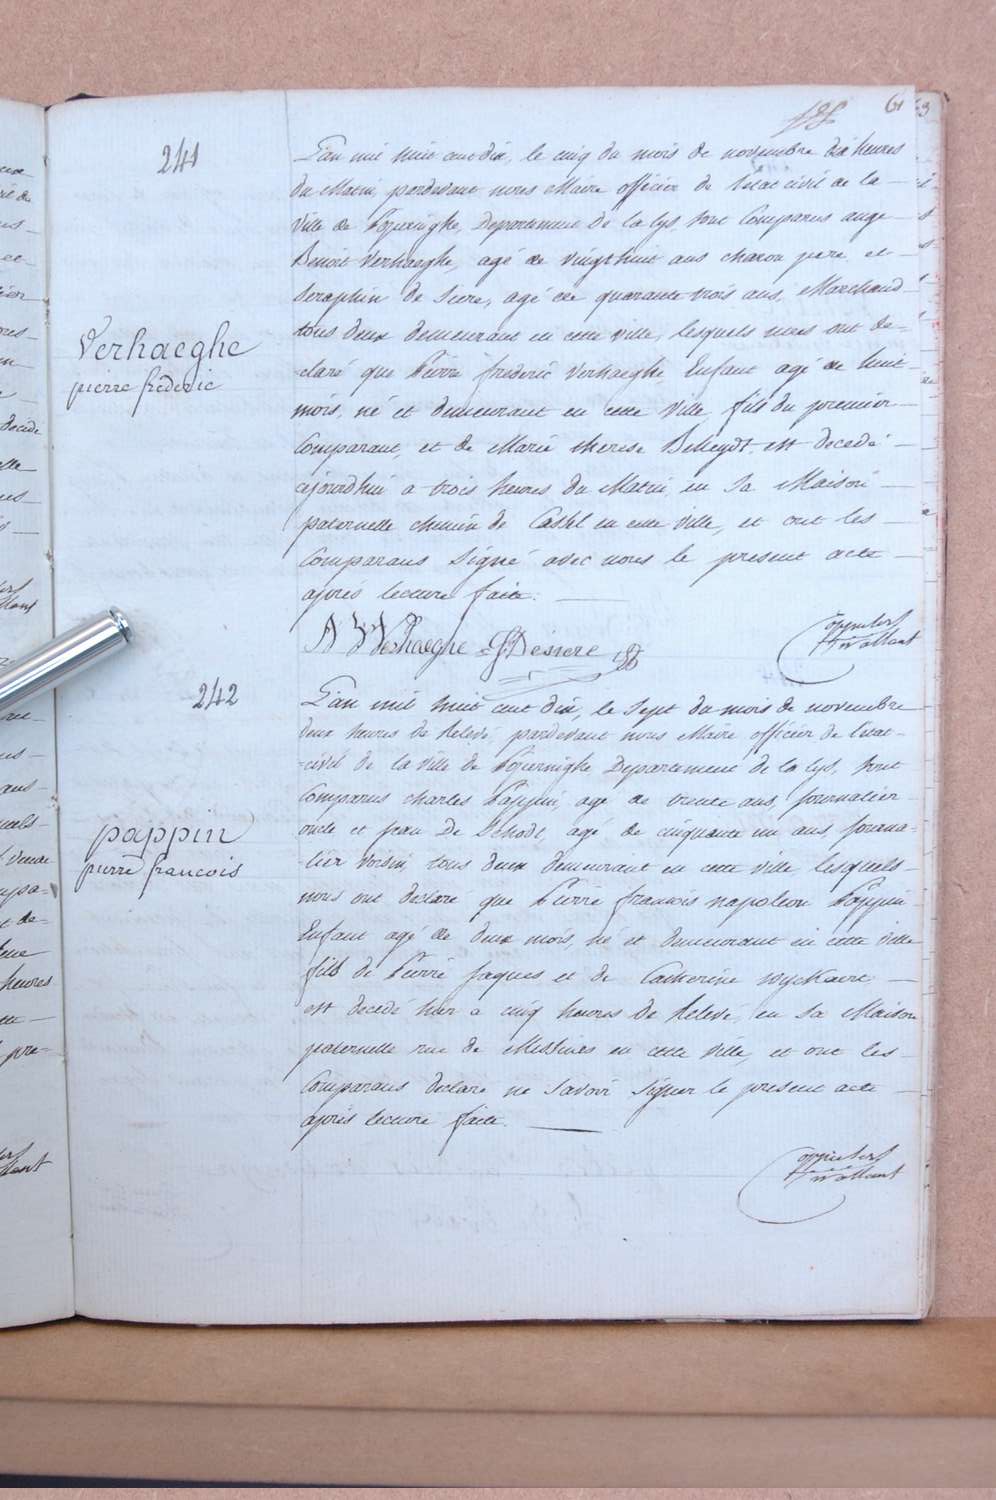 61
241
L'an mil huit cent dix, le cinq du mois de novembre dix heures
du Matin, pardevant nous Maire officier de l'etat civil de la
Ville de Poperinghe, Departement de la Lys, sont Comparus ange
Benoit Verhaeghe, agé de vingthuit ans charon pere, et
Seraphin de siere, agé de quarante trois ans, Marchand
tous deux demeurant en cette ville, lesquels nous ont de-
claré que Pierre frederic Verhaeghe Enfant agé de huit
mois, né et demeurant en cette ville, fils du premier
Comparant, et de Marie therese est decedé
cejourdhui a trois heures du Matin, en sa Maison
paternelle chemin de Cassel en cette ville, et ont les
Comparans Signé avec nous le present acte
après lecture faite.
Verhaeghe
pierre fréderic
Verhaeghe Desiere
242
L'an mil huit cent dix, le sept du mois de novembre
deux heures de Relevé, pardevant nous Maire officier de l'etat
civil de la ville de Poperinghe Departement de la Lys, sont
Comparus charles Pappin, agé de trente ans, journalier
oncle et jean De Schodt, agé de cinquante un ans, journa-
lier voisin, tous deux demeurant en cette ville lesquels
nous ont declaré que Pierre francois napoleon Pappin
Enfant agé de deux mois, né et demeurant en cette ville
fils de Pierre Jaques et de Catherine Wyckaert
est decedé hier a cinq heures de Relevé, en sa Maison
paternelle rue de Messines en cette ville, et ont les
Comparans declaré ne savoir signer le present acte
après lecture faite.
pappin
pierre francois